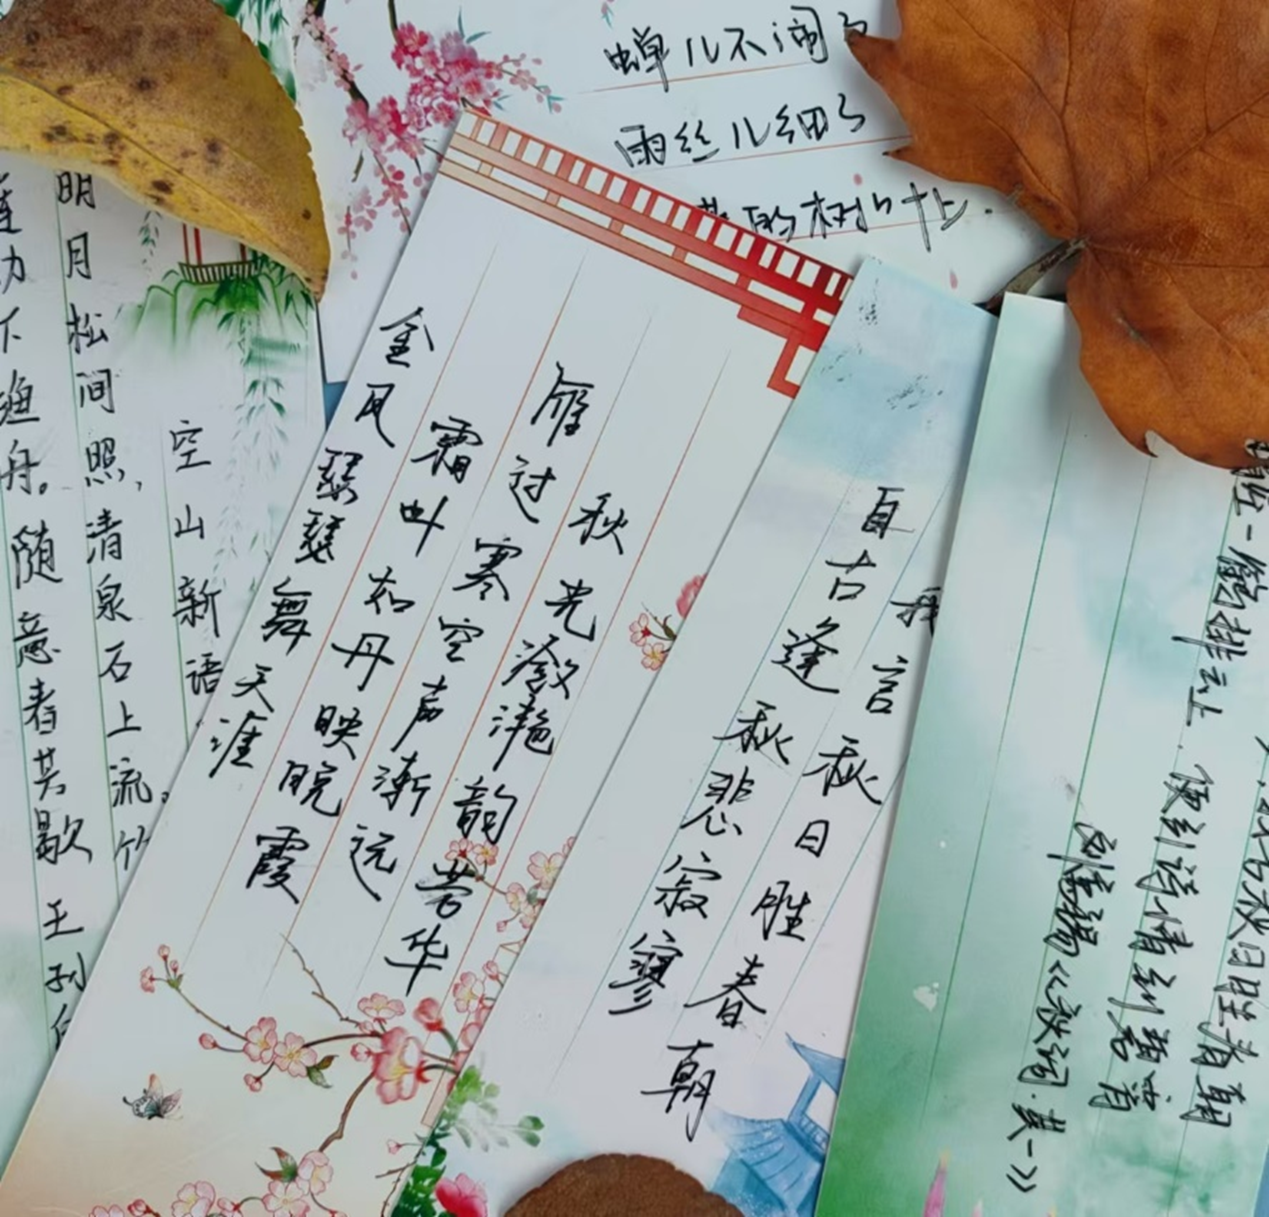 蝉儿不闹了
雨丝儿细了
的树叶
空山新语
明月松间照,清泉石上流。竹
莲动下渔舟。随意春芳歇 王孙自
秋光潋滟韵芳华
雁过寒空声渐远
霜叶如丹映晚霞
金风瑟瑟舞天涯
自古逢秋悲寂寥
我言秋日胜春朝
我言秋日胜春朝
一鹤排云上、便引诗情到碧霄
刘禹锡《秋词·其一》